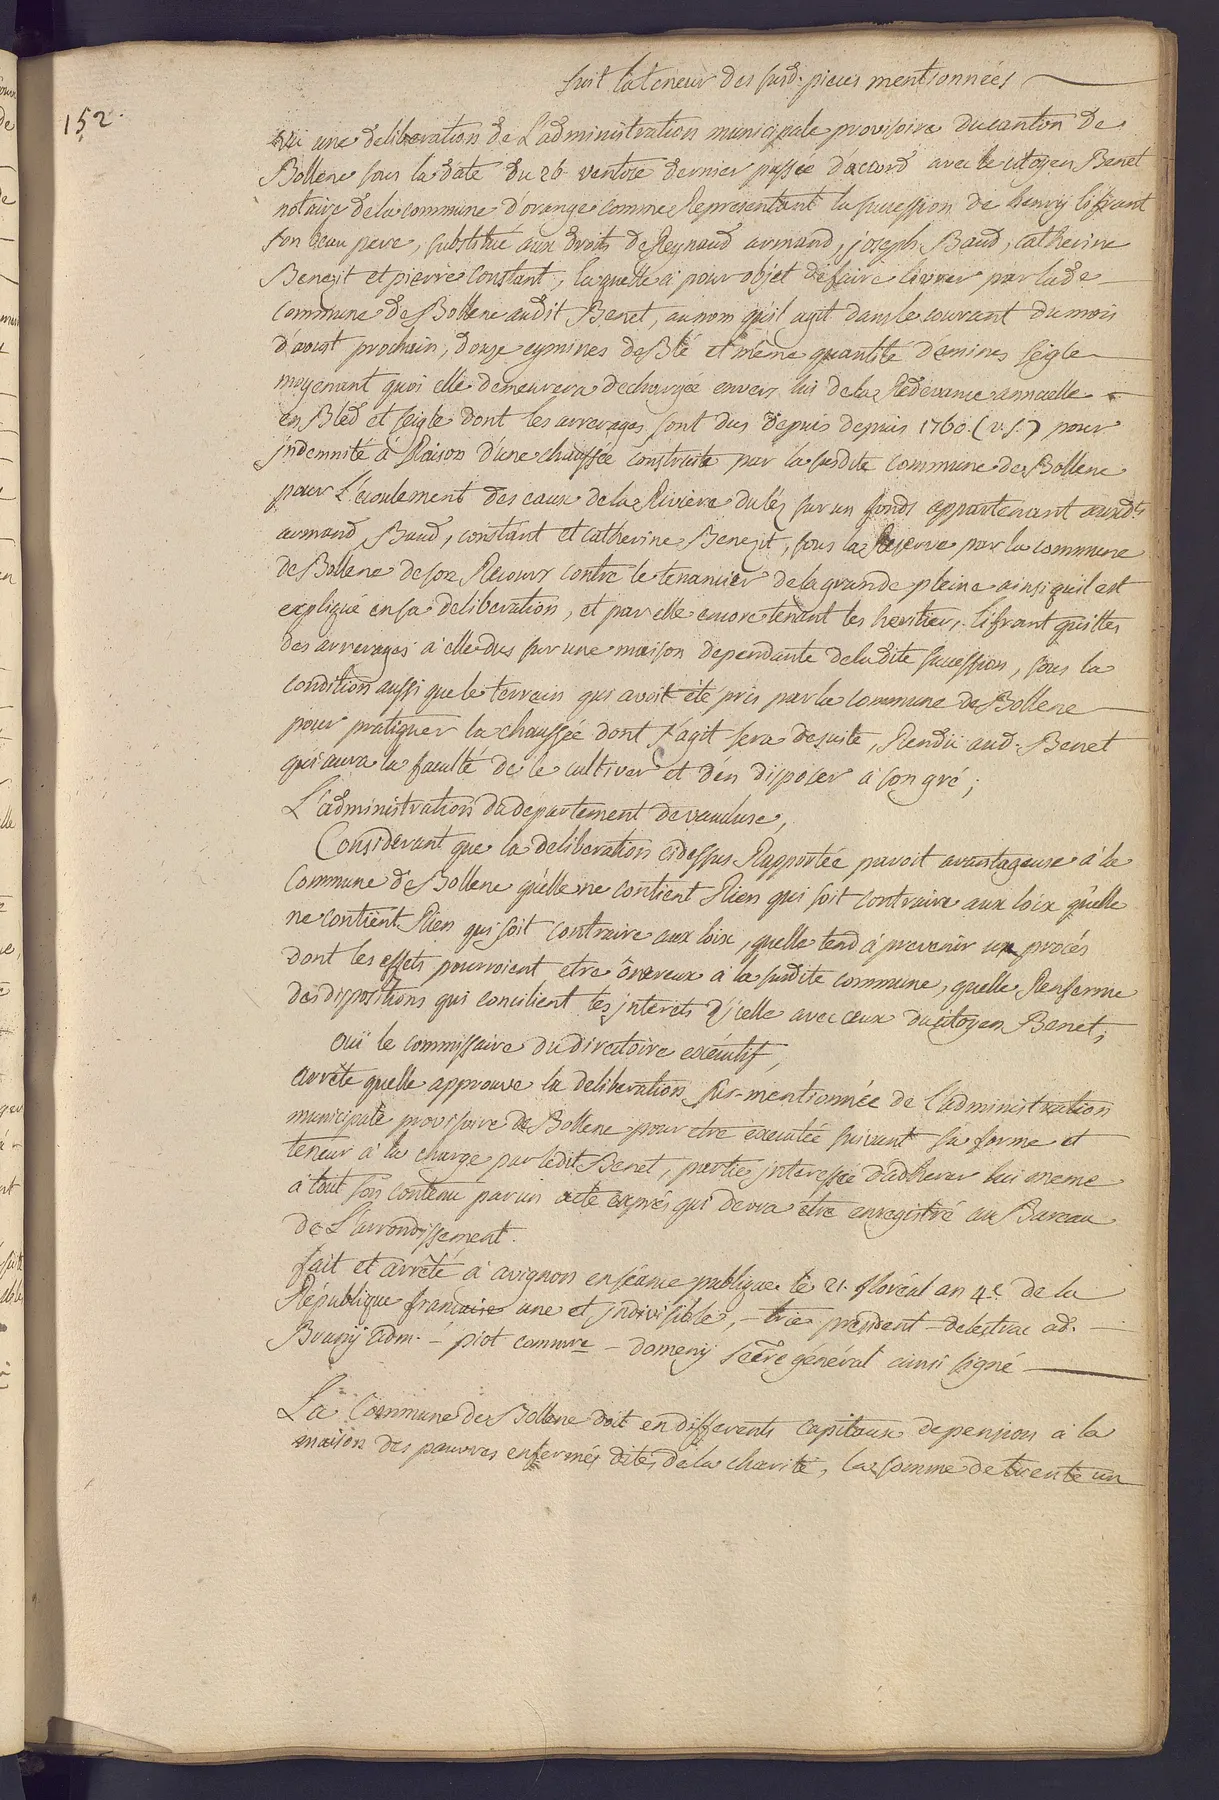 152.
suit la teneur des susd. pieces mentionnées
Vu une deliberation de L'administration municipale provisoire du canton de
Bollene sous la date du 26 ventose dernier passée d'accord avec le citoyen Benet
notaire de la commune d'orange comme Representant la succession de henry lifrant
son beau pere, substitué aux droits de Reynaud armand, joseph Baud, catherine
Benezit et pierre Constant, laquelle a pour objet de faire livrer par lade
commune de Bollene audit Benet, au nom qu'il agit dans le courant du mois
d'aoust prochain, douze eymines de Blé et même quantité d'emines seigle
moyenant quoi elle demeurera dechargée envers lui de la Redevance annuelle
en Bled et seigle dont les arrerages sont dus depuis depuis 1760. (v. s.) pour
jndemnité à Raison d'une chaussée construite par la susdite commune de Bollene
pour L'ecoulement des eaux de la Riviere du léz sur un fonds appartenant auxdts
armand, Baud, constant et catherine Benezit, sous la Reserve par la commune
de Bollene de son Recours contre le tenancier de la grande pleine ainsi quil est
expliqué en sa deliberation, et par elle encore tenant les heritiers lifrant quittes
des arrerages a elle dus sur une maison dependante de ladite succession, sous la
condition aussi que le terrain qui avoit été pris par la commune de Bollene
pour pratiquer la chaussée dont s'agit sera desuite, Rendu aud. Benet
qui aura la faculté de le cultiver et d'en disposer à son gré;
L'administration du departement de vaucluse,
Considerant que la deliberation cidessus Rapportée paroit avantageuse à la
Commune de Bollene quelle ne contient Rien qui soit contraire aux loix quelle
ne contient Rien qui soit contraire aux loix, quelle tend à prevenir un procés
dont les effets pourroient etre ônereux à la susdite commune, quelle Renferme
des dispositions qui concilient les jnterets d'jcelle avec ceux du citoyen Benet;
Ouï le commissaire du directoire executif,
arrête quelle approuve la deliberation sus-mentionnée de L'administration
municipale provisoire de Bollene pour etre executée suivant sa forme et
teneur à la charge par ledit Benet, partie jnteressée d'adherer lui meme
à tout son contenu par un acte exprés qui devra être enregistré au Bureau
de L'arrondissement.
fait et arrêté à avignon en séance publique le 21. floréal an 4e. de la
République française une et jndivisible, - président - delestrac ad. -
Bruny adm. - piot commre - domeny Secre. général ainsi signé
La Commune de Bollene doit en differents capitaux de pension à la
maison des pauvres enfermés dités de la charité, la somme de trente un